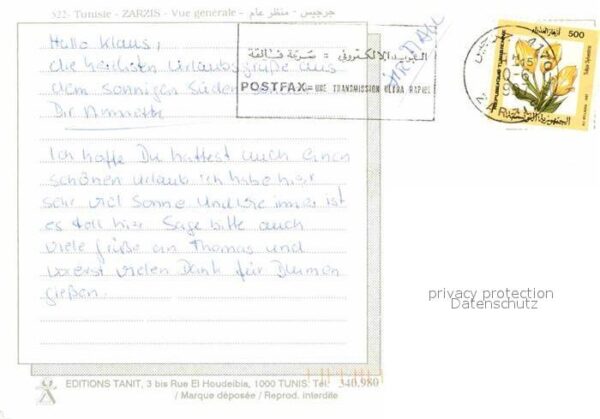 522- Tunisie - ZARZIS - Vue générale - جرجيس - منظر عام
Hallo Klaus,
die herzlichsten Urlaubsgrüße aus
dem sonnigen Süden
Dir Annette
Ich hoffe Du hattest auch einen
schönen Urlaub ich habe hier
sehr viel Sonne und wie immer ist
es toll hier. Sage bitte auch
viele Grüße an Thomas und
vorerst vielen Dank für Blumen
gießen.
البريد الإلكتروني = سرعة فائقة
POSTFAX = UNE TRANSMISSION ULTRA RAPIDE
PAR AVION
500
privacy protection
Datenschutz
EDITIONS TANIT, 3 bis Rue El Houdeibia, 1000 TUNIS. Tél: 340.980
/ Marque déposée / Reprod. interdite